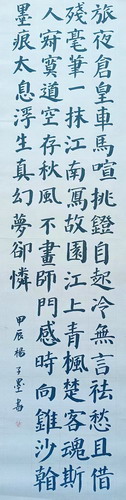 旅夜倉皇車馬喧挑鐙自起冷無言祛愁且借
殘毫筆一抹江南冩故園江上青楓楚客魂斯
人寂寞道空存秋風不畫師門感時向錐沙翰
墨痕太息浮生真幻夢卻憐
甲辰楊子墨書